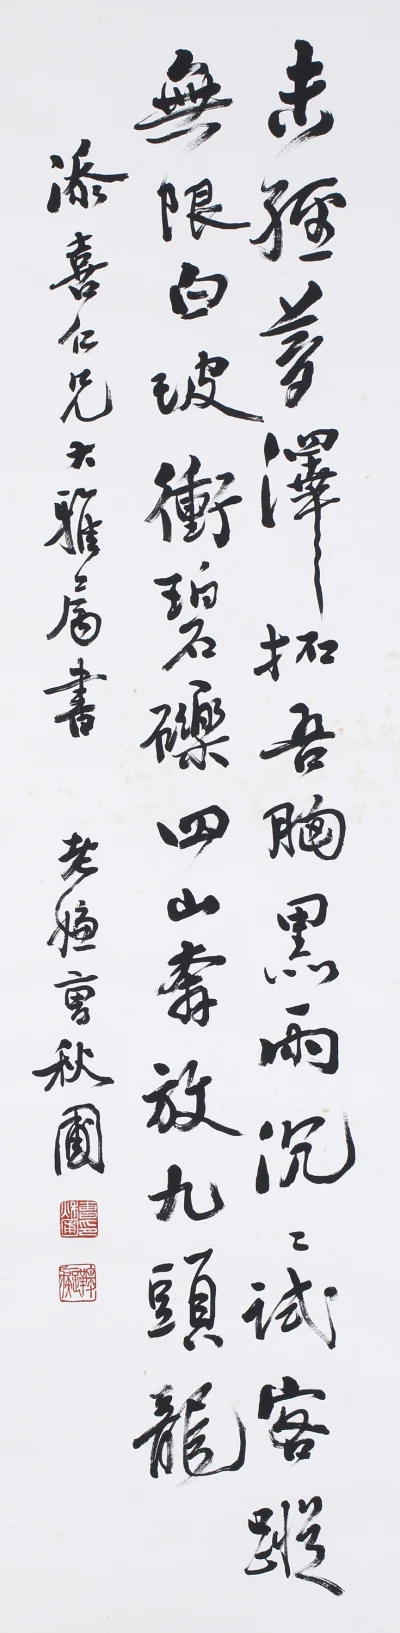 未經夢澤拓吾胸黑雨沉々試客蹤
無限白波衝碧礫四山奔放九頭龍
添喜仁兄大雅属書 老嫌曹秋圃